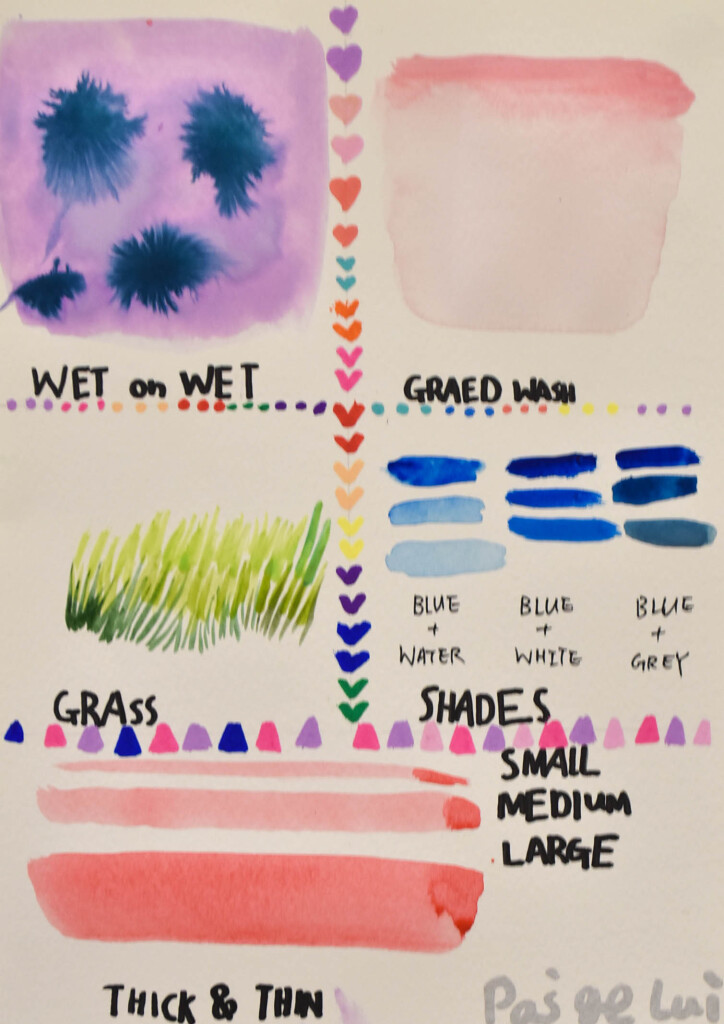 WET on WET
GRAED WASH
BLUE
+
WATER
BLUE
+
WHITE
BLUE
+
GREY
GRAss
SHADES
SMALL
MEDIUM
LARGE
THICK & THIN
Paige Lui